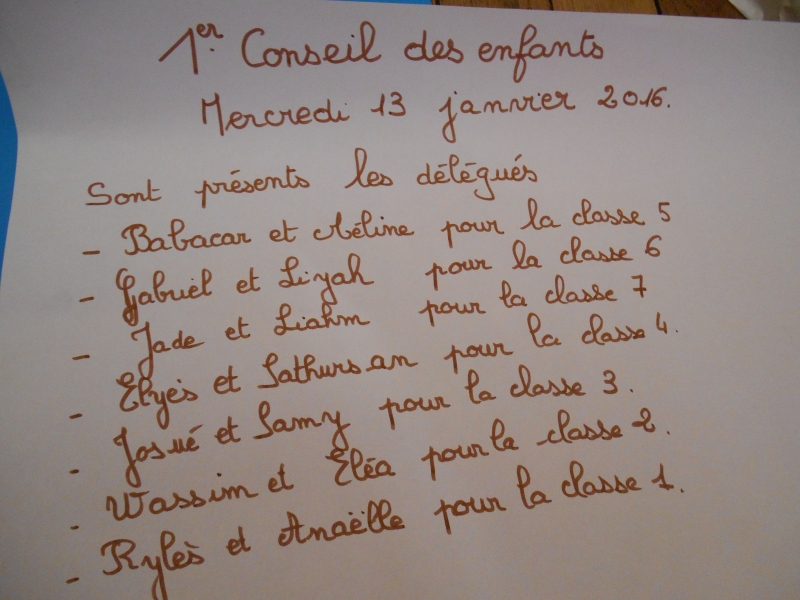 1er. Conseil des enfants
Mercredi 13 janvier 2016.
Sont présents les délégués
- Babacar et Méline pour la classe 5
- Gabriel et Liyah pour la classe 6
- Jade et Liahm pour la classe 7
- Elyès et Sathursan pour la classe 4.
- Josué et Samy pour la classe 3.
- Wassim et Eléa pour la classe 2.
- Rylès et Anaëlle pour la classe 1.